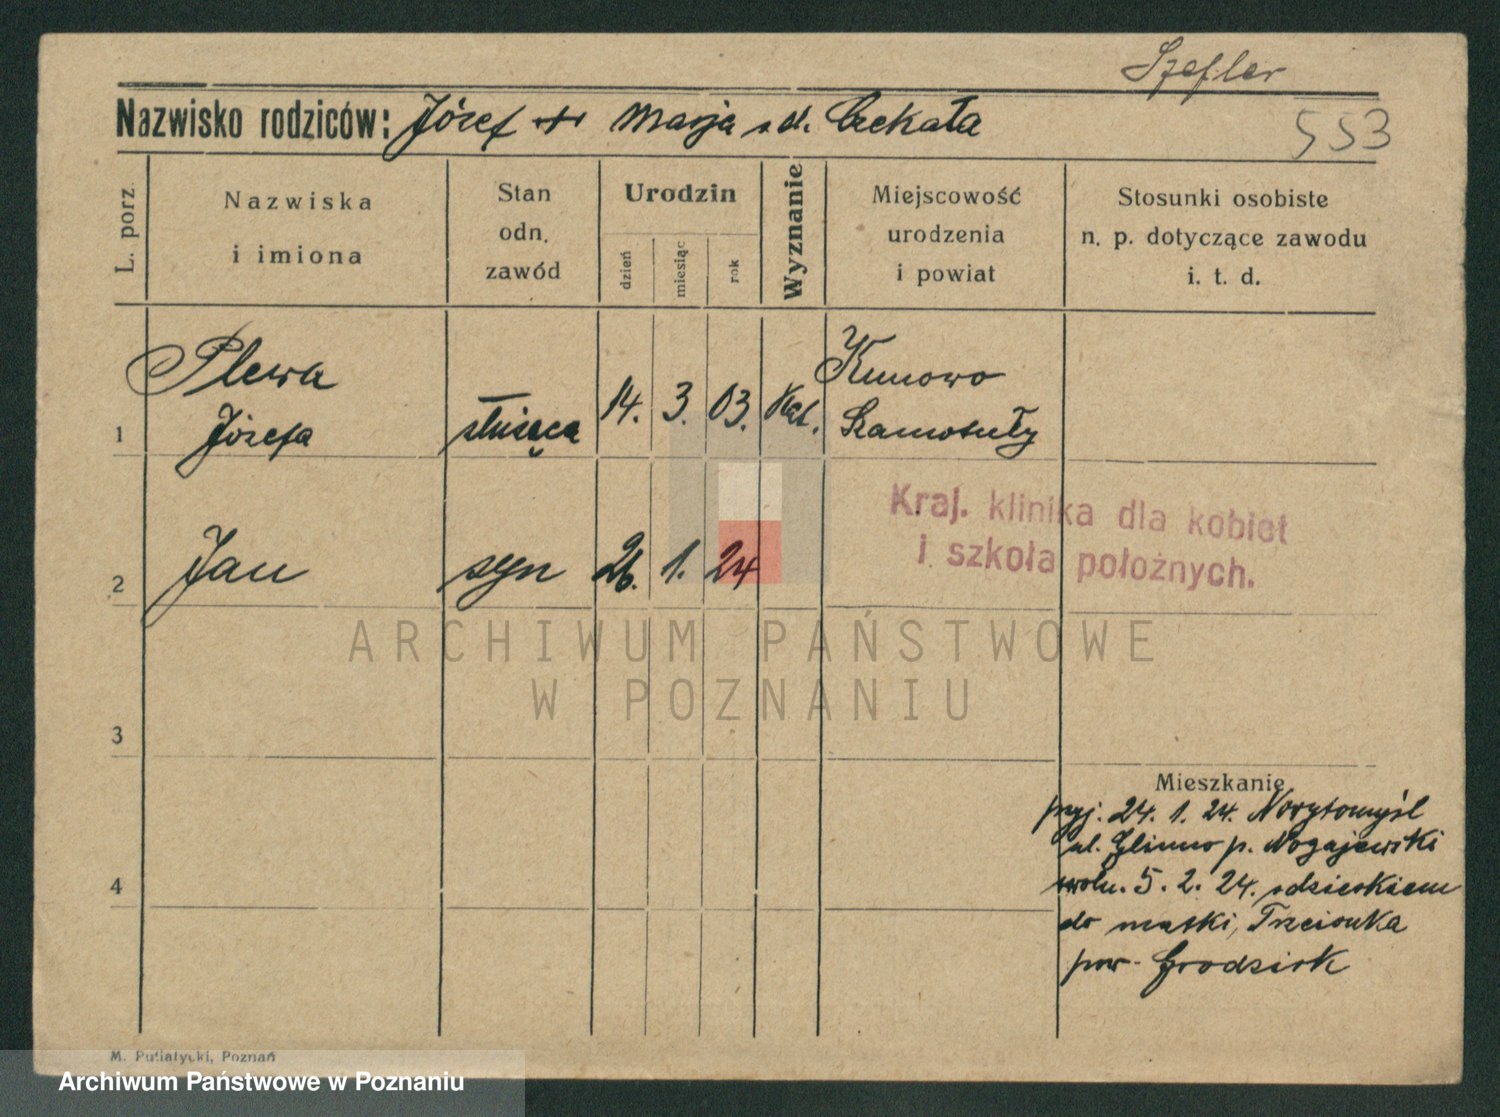 Szefler
Nazwisko rodziców: Józef + Marja z d. Czekała
553
L. porz.
Nazwiska
i imiona
Stan
odn.
zawód
Urodzin
dzień
miesiąc
rok
Wyznanie
Miejscowość
urodzenia
i powiat
Stosunki osobiste
n. p. dotyczące zawodu
i. t. d.
1
Plewa
Józefa
służąca
14. 3. 03.
Kat.
Kunowo
Szamotuły
2
Jan
syn
26. 1. 24
Kraj. klinika dla kobiet
i szkoła położnych.
ARCHIWUM PAŃSTWOWE
W POZNANIU
3
4
Mieszkanie
przyj. 24. 1. 24. Nowytomyśl
ul. Glinno p. Nogajewski
zwoln. 5. 2. 24. z dzieckiem
do matki, Trzcionka
pow. Grodzisk
M. Putiatycki, Poznań
Archiwum Państwowe w Poznaniu